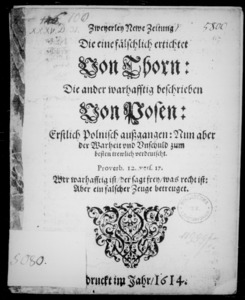 100
5800
Zweyerley Newe Zeitung/
Die eine fälschlich ertichtet
Von Thorn:
Die ander warhafftig beschrieben
Von Posen:
Erstlich Polnisch außgangen: Nun aber
der Warheit vnd Vnschuld zum
besten newlich verdeutscht.
Proverb. 12. vers. 17.
Wer warhafftig ist/der sagt frey/was recht ist:
Aber ein falscher Zeuge betreuget.
5080.
druckt im Jahr/1614.